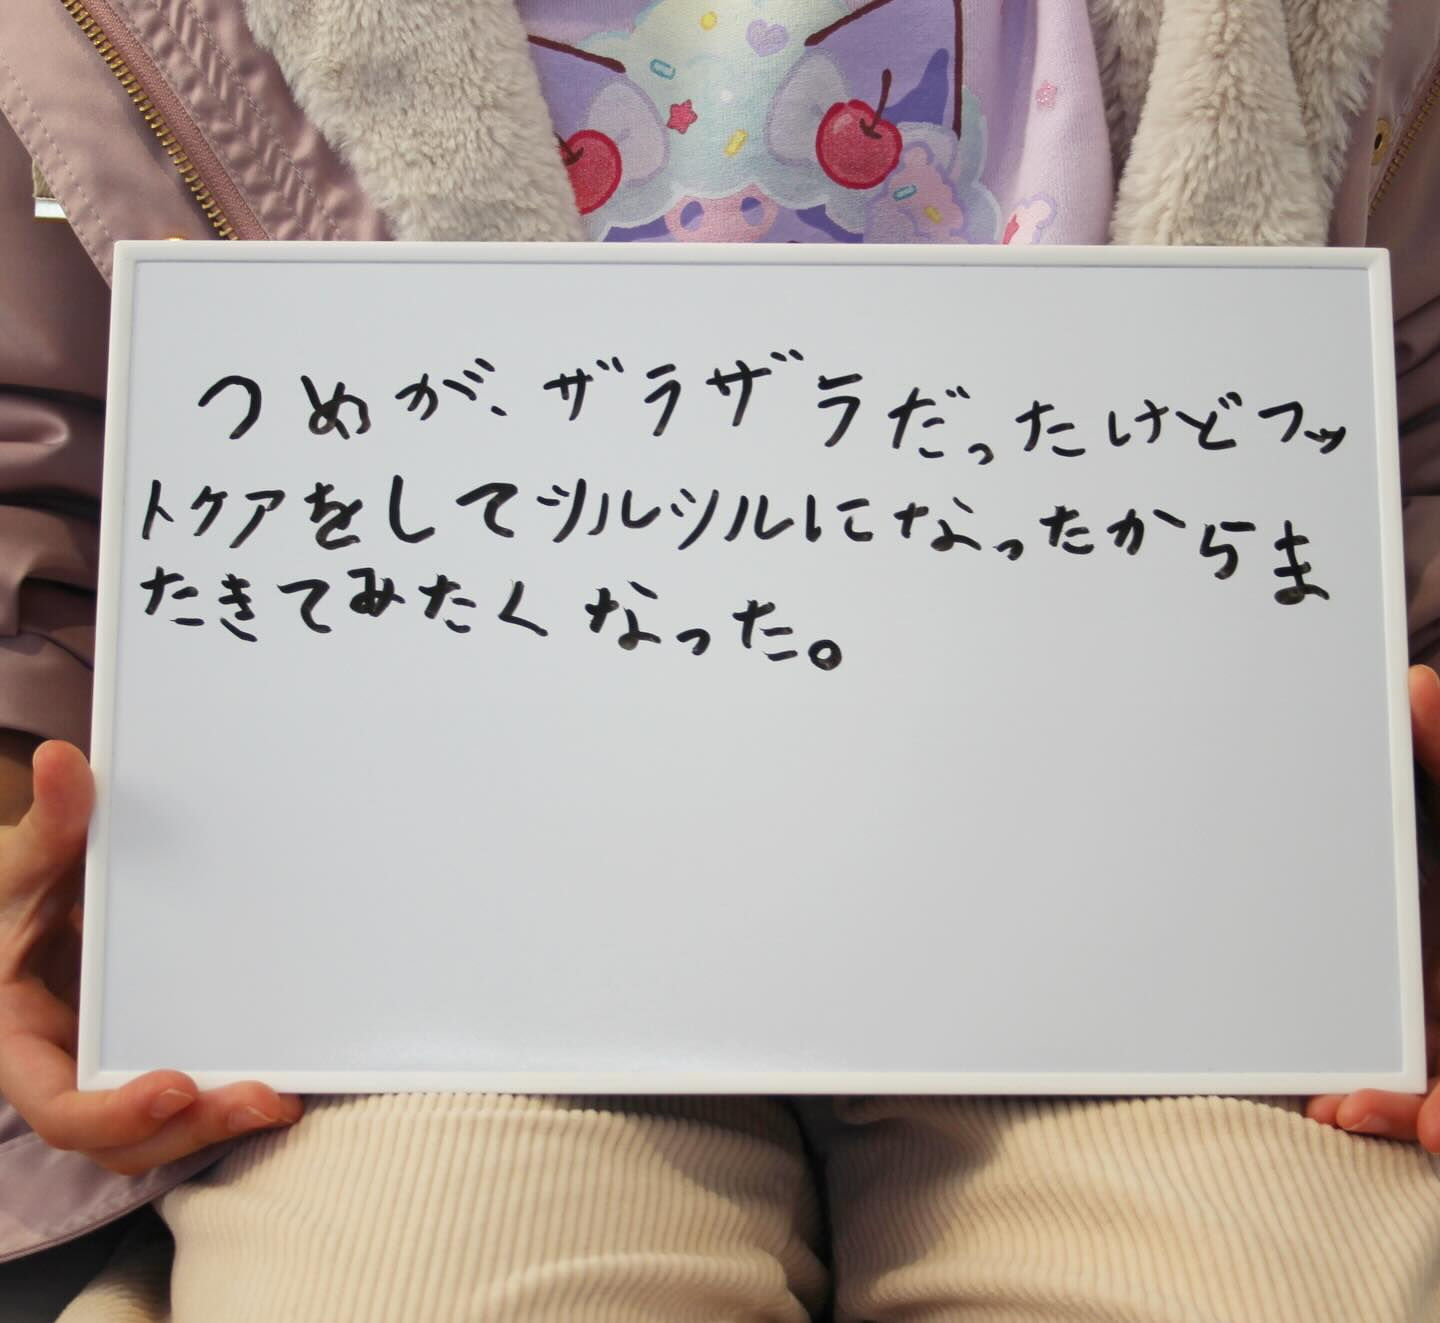 つめが、ザラザラだったけどフッ
トケアをしてツルツルになったからま
たきてみたくなった。